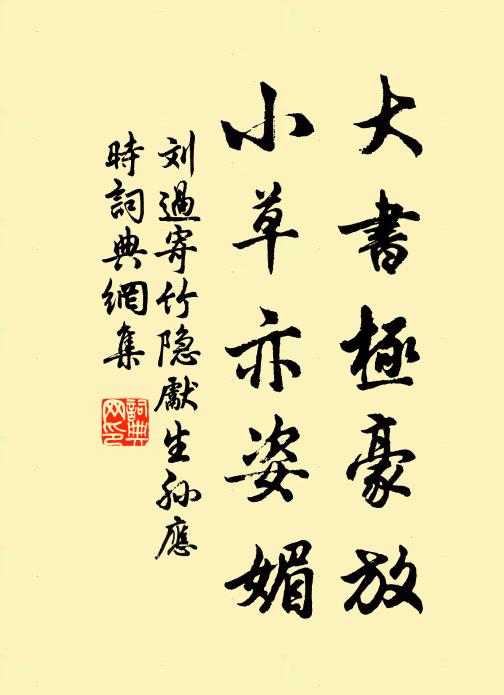 大書極豪放
小草亦姿媚
刘過寄竹隐獻生孙應
時詞典網集
詞典
网印